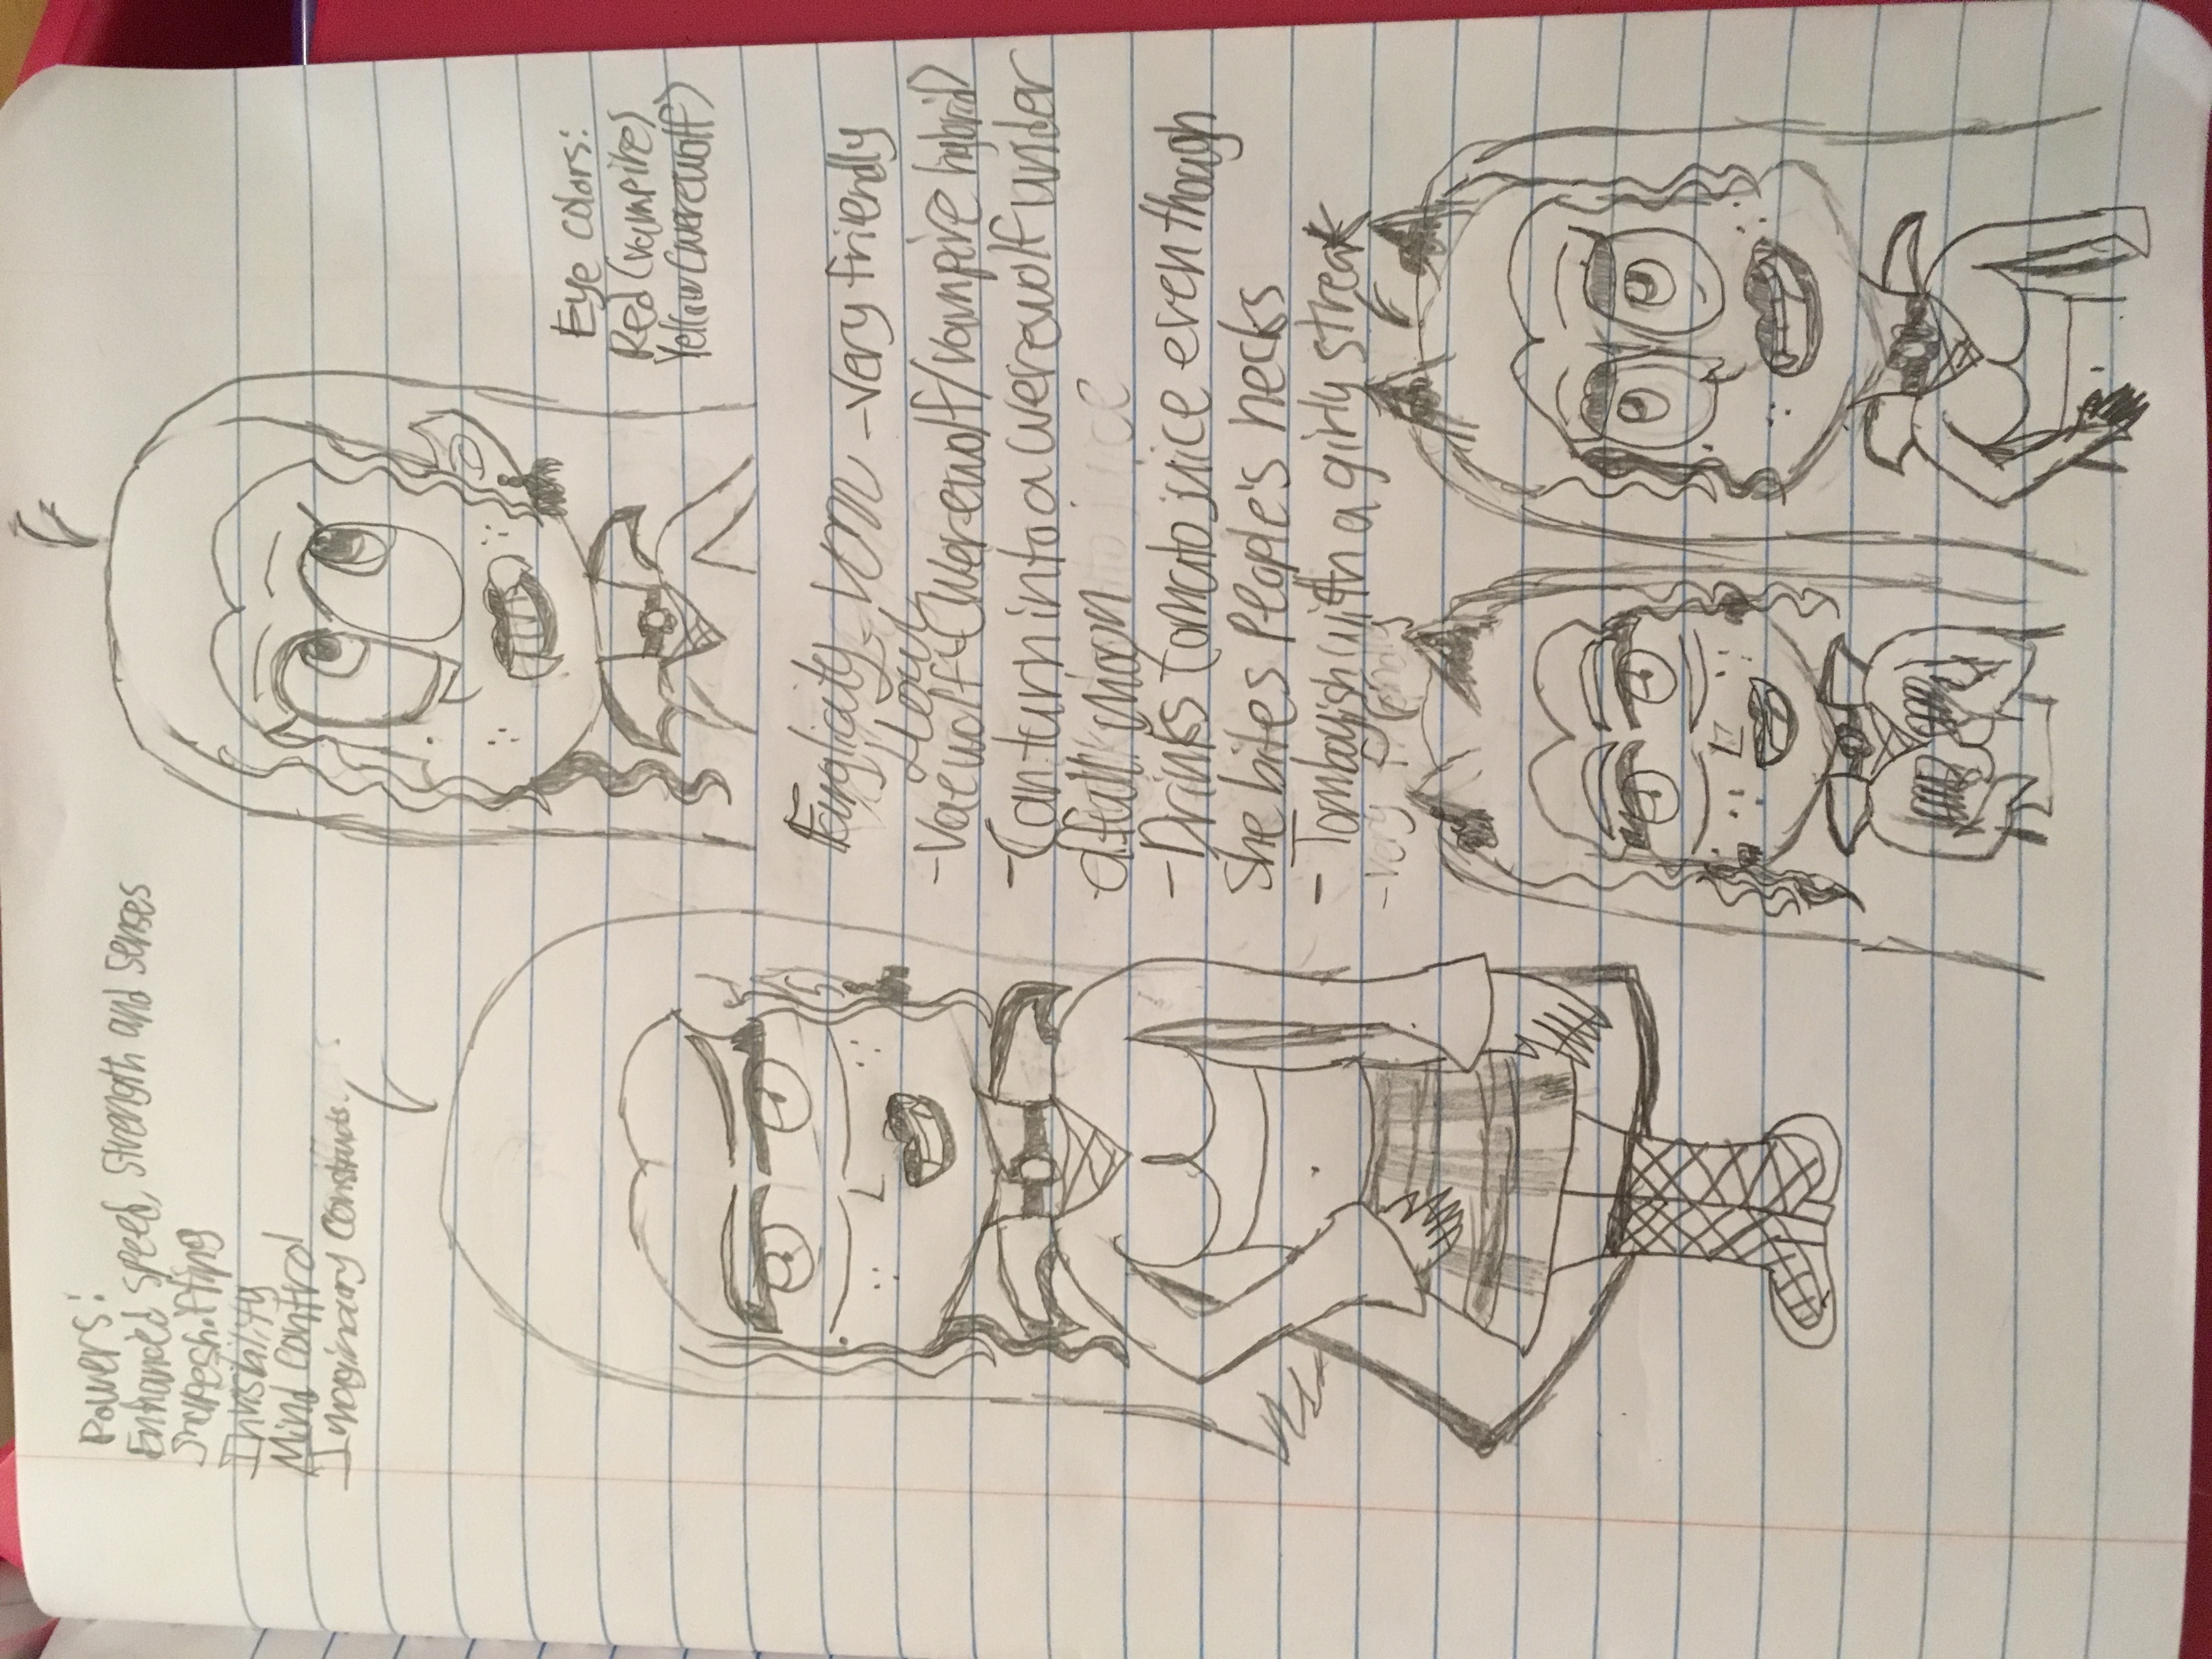 Powers:
Enhanced speed, strength and senses
Shapeshifting
Invisiality
Mind Control
Imaginary constructs
Eye colors:
Red (vampire)
Yellow (werewolf)
-very friendly
(Werewolf/vampire hybrid)
-Can turn into a werewolf under
a full moon
-Drinks Tomato juice even though
she bites People's necks
- Tomboyish with a girly streak
-very